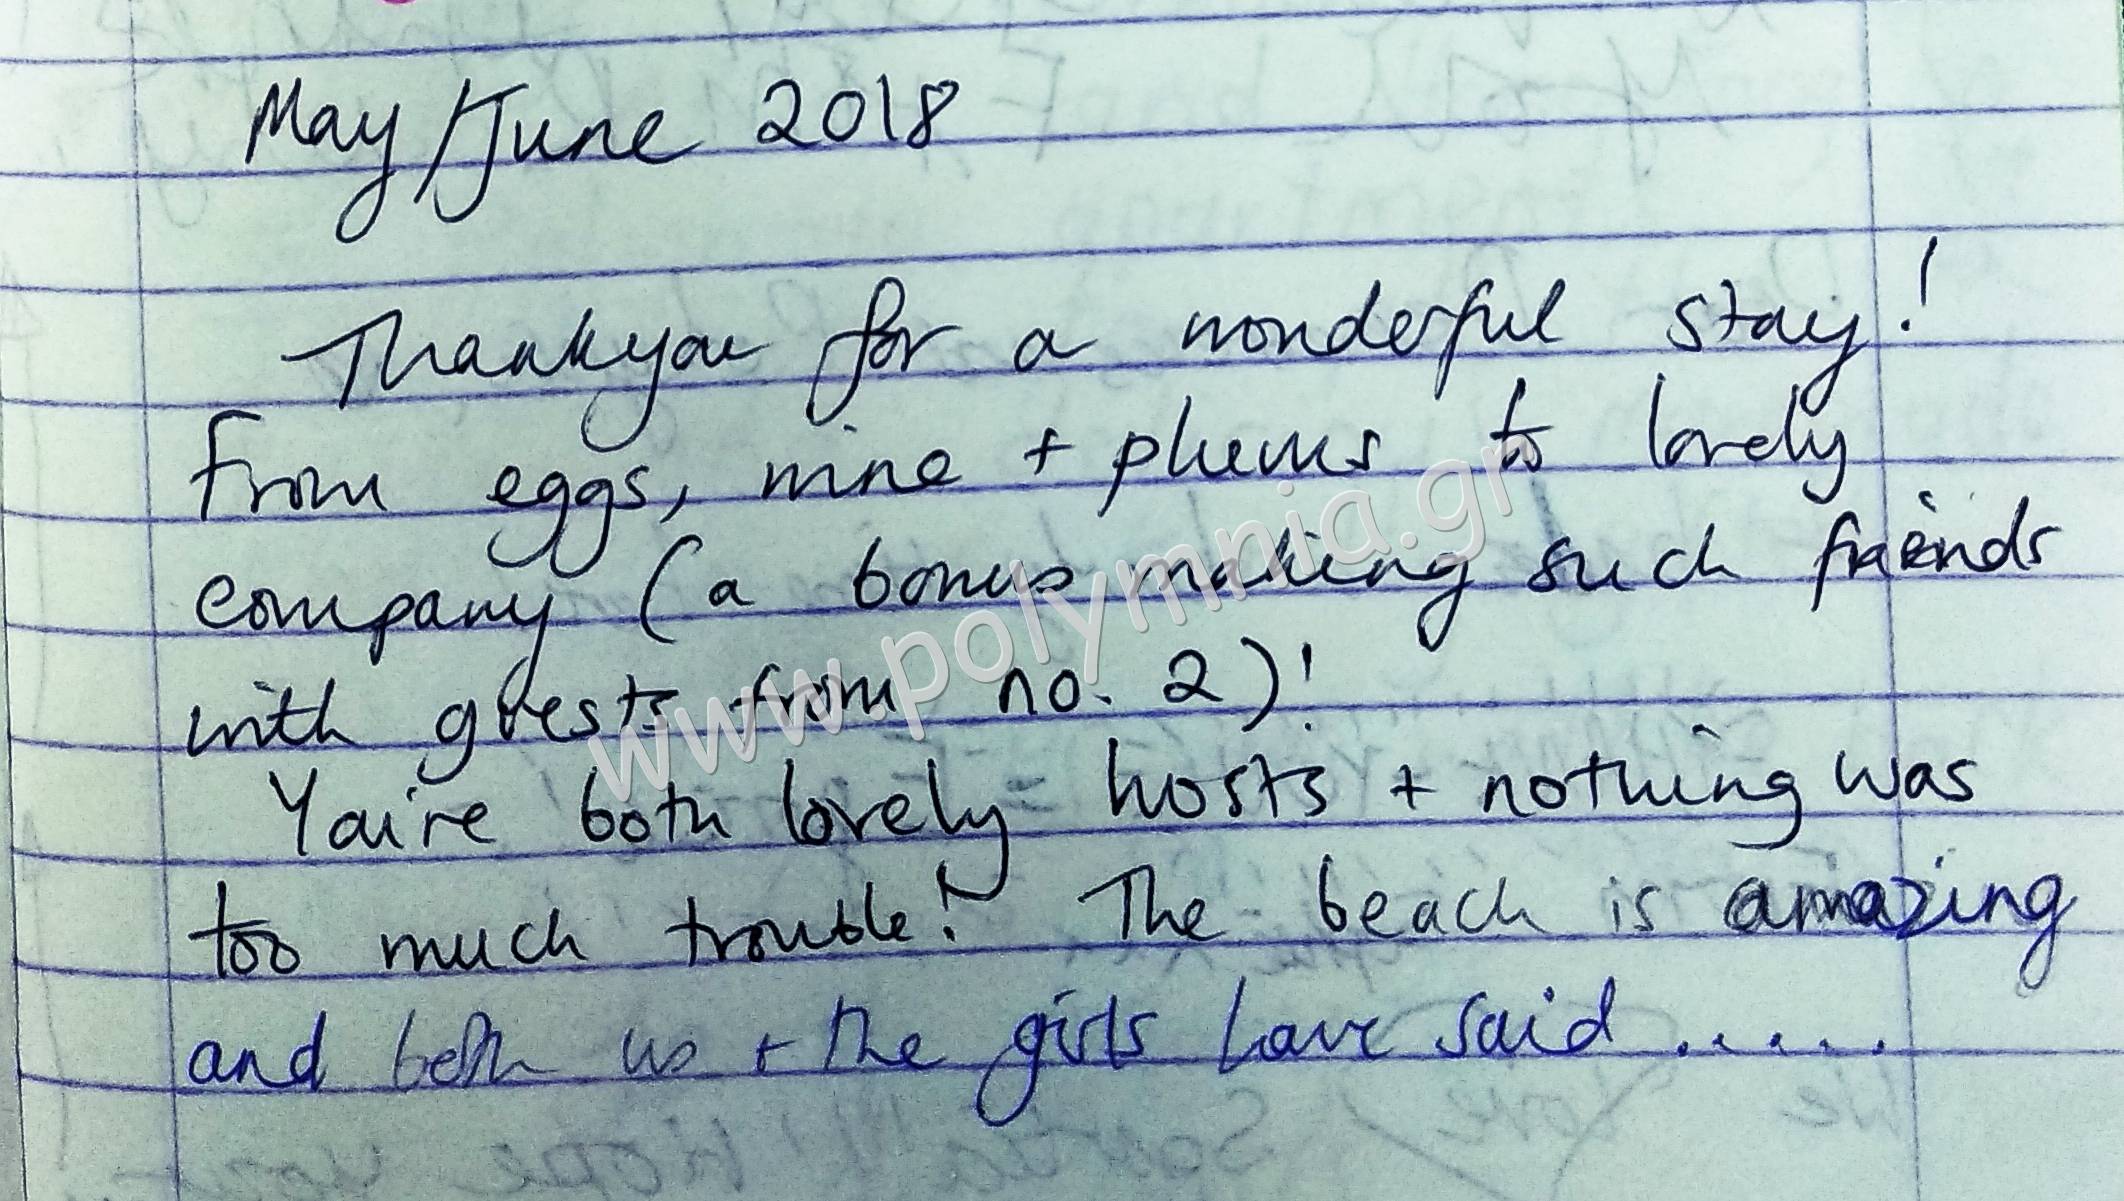 May/June 2018
Thankyou for a wonderful stay!
From eggs, wine + plums to lovely
company (a bonus making such friends
with guests from no. 2)!
You're both lovely hosts + nothing was
too much trouble! The beach is amazing
and both us + the girls have said .....
www.polymnia.gr